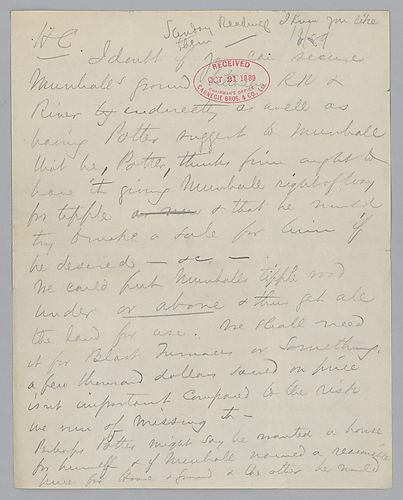 Sunday Readings I know you like
them
1889
H C.
I doubt if you can secure
Munhall's ground between RR &
RECEIVED
OCT 21 1889
CHAIRMAN'S OFFICE
CARNEGIE BROS. & CO., Ltd.
River by indirectly as well as
having Potter suggest to Munhall
that he, Potter, thinks firm ought to
have it giving Munhall right of way
for tipple & that he would
try to make a sale for him if
he desired — &c —
We could put Munhalls tipple road
under or above & thus get all
the land for use. We shall need
it for Blast Furnaces or Something.
a few thousand dollars saved on price
isn't important compared to the risk
we run of missing it —
Perhaps Potter might say he wanted a house
for himself & if Munhall named a reasonable
price for Home & Ground & the other he would